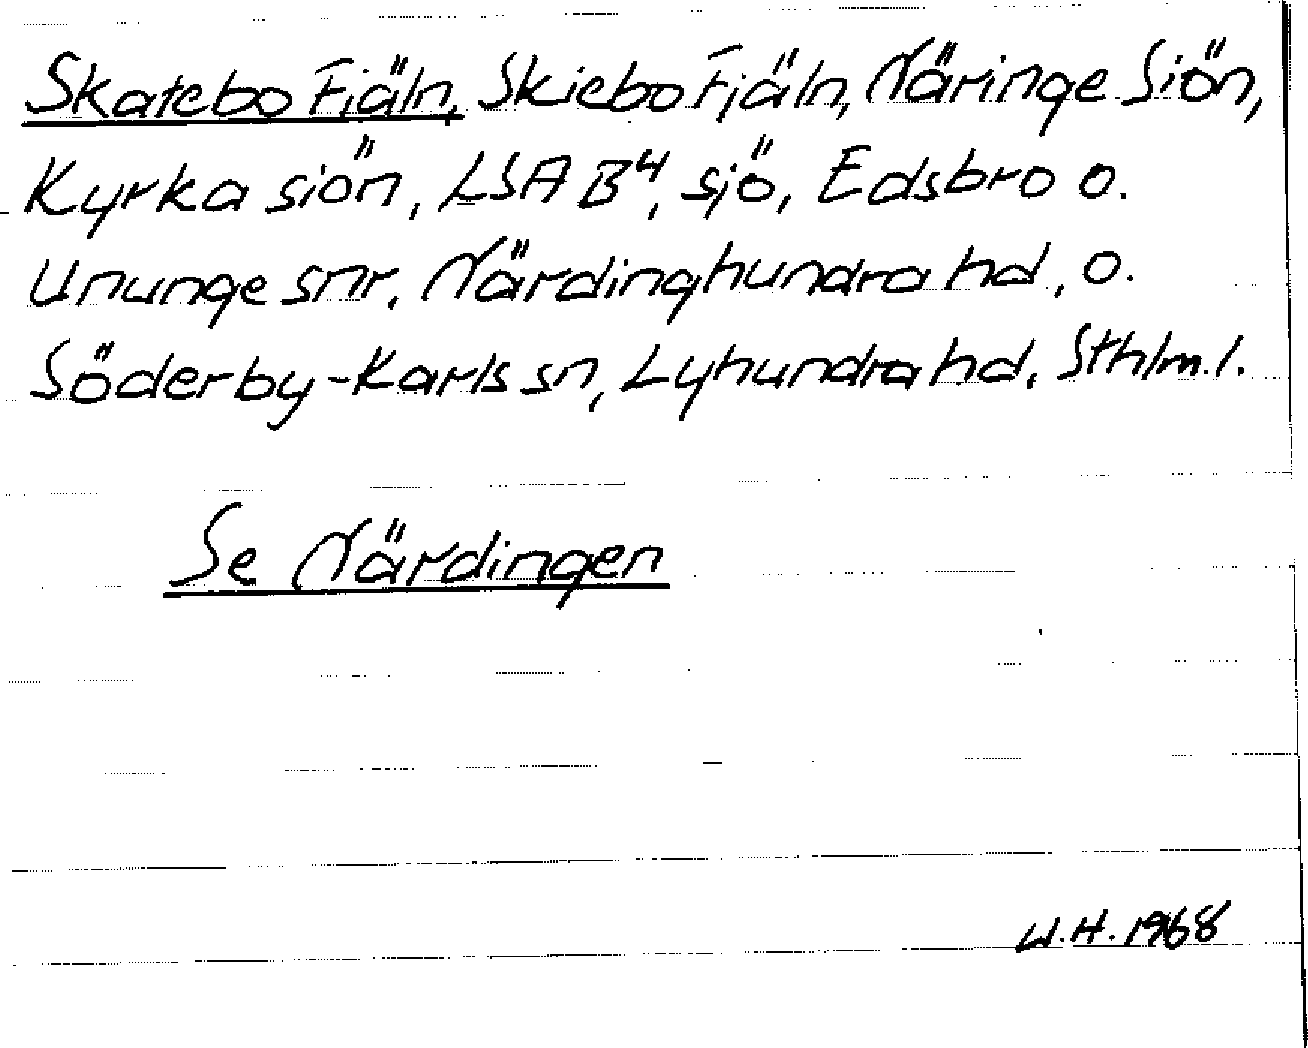 Skatebo Fiäln, Skiebo Fjäln, Näringe Siön,
Kyrka siön, LSA B4, sjö, Edsbro o.
Ununge snr, Närdinghundra hd, o.
Söderby-Karls sn, Lyhundra hd, Sthlm. l.
Se Närdingen
W.H. 1968